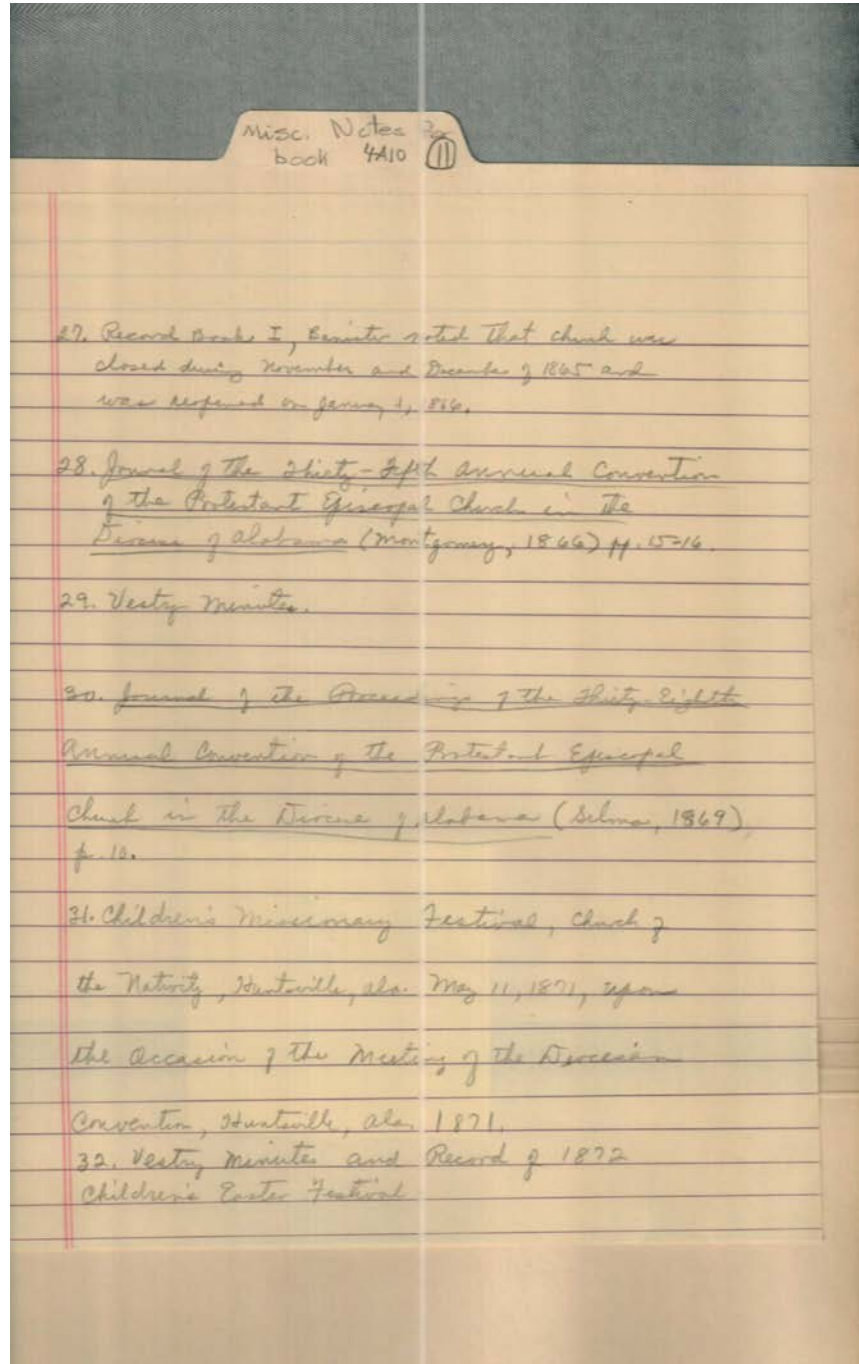 Misc. Notes
book 4A10 11
27. Record Book I, Banister noted that church was
closed during November and December of 1865 and
was reopened on January 1, 1866.
28. Journal of the Thirty-Fifth Annual Convention
of the Protestant Episcopal Church in the
Diocese of Alabama (Montgomery, 1866) pp. 15-16.
29. Vestry Minutes.
30. Journal of the Proceedings of the Thirty-Eighth
Annual Convention of the Protestant Episcopal
Church in the Diocese of Alabama (Selma, 1869)
p. 10.
31. Children's Missionary Festival, Church of
the Nativity, Huntsville, Ala. May 11, 1871, upon
the Occasion of the Meeting of the Diocesan
Convention, Huntsville, Ala. 1871.
32. Vestry Minutes and Record of 1872
Children's Easter Festival